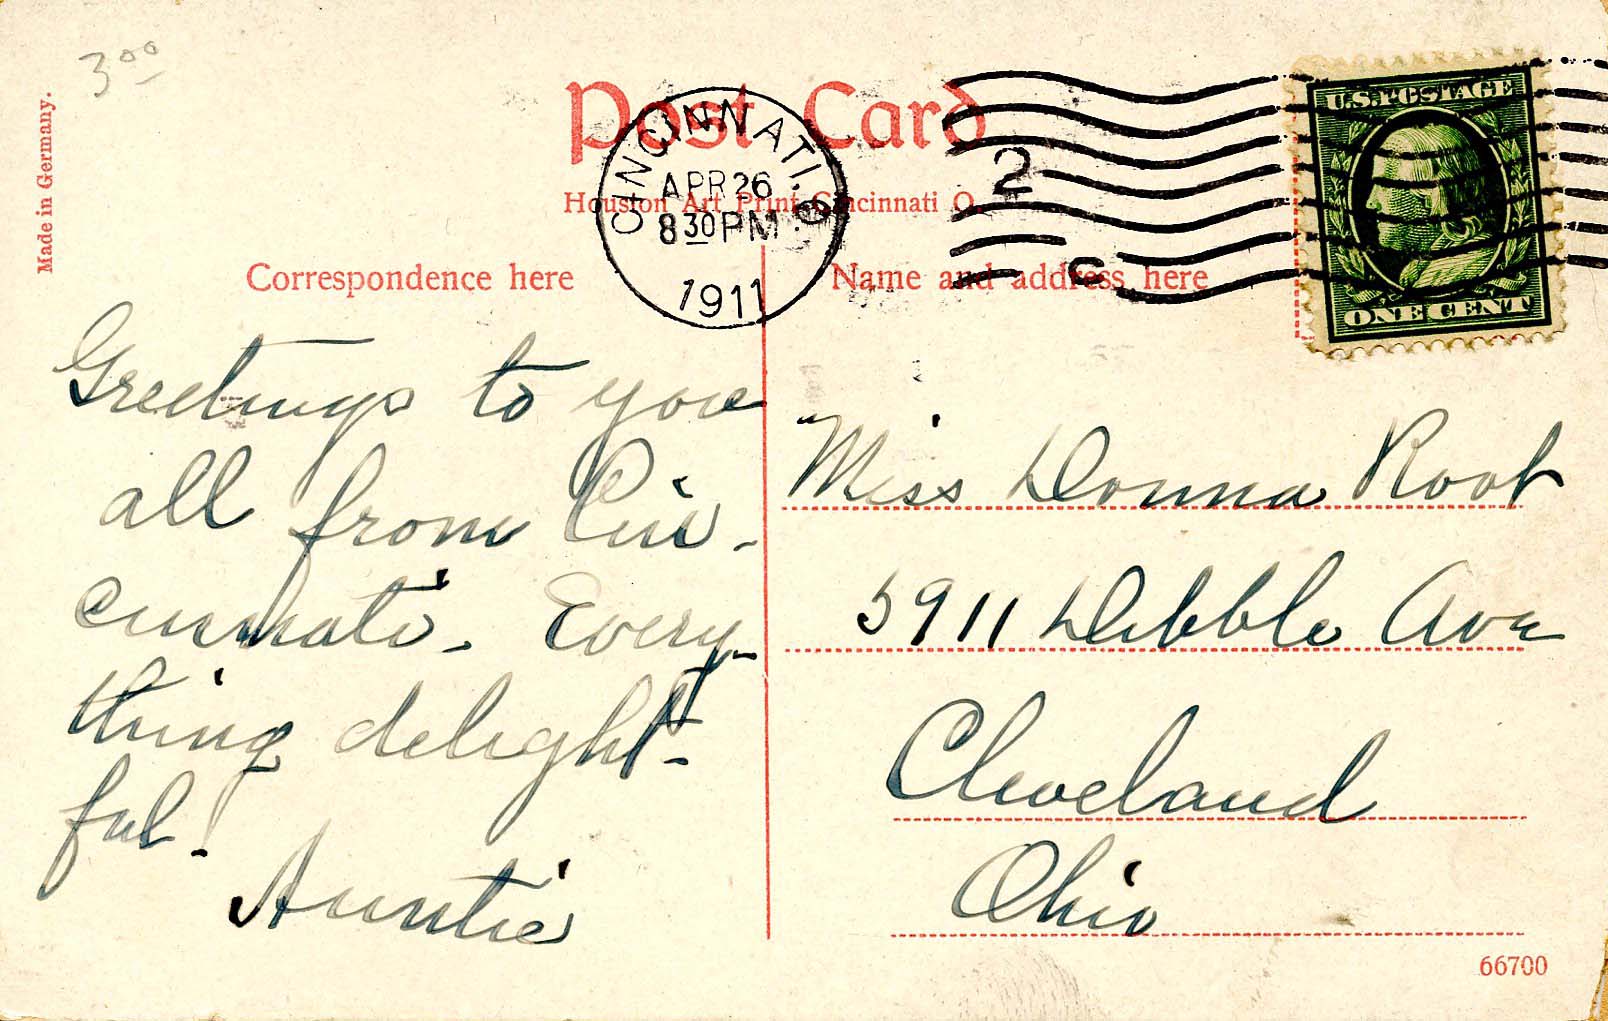 3 00
Made in Germany.
Post Card
Houston Art Print Cincinnati O.
CINCINNATI. O.
APR 26
8 30 PM
1911
2
C
U.S. POSTAGE
ONE CENT
Correspondence here
Name and address here
Greetings to you
all from Cin-
cinnati. Every-
thing delight-
ful!
Auntie
Miss Donna Root
5911 Dibble Ave
Cleveland
Ohio
66700